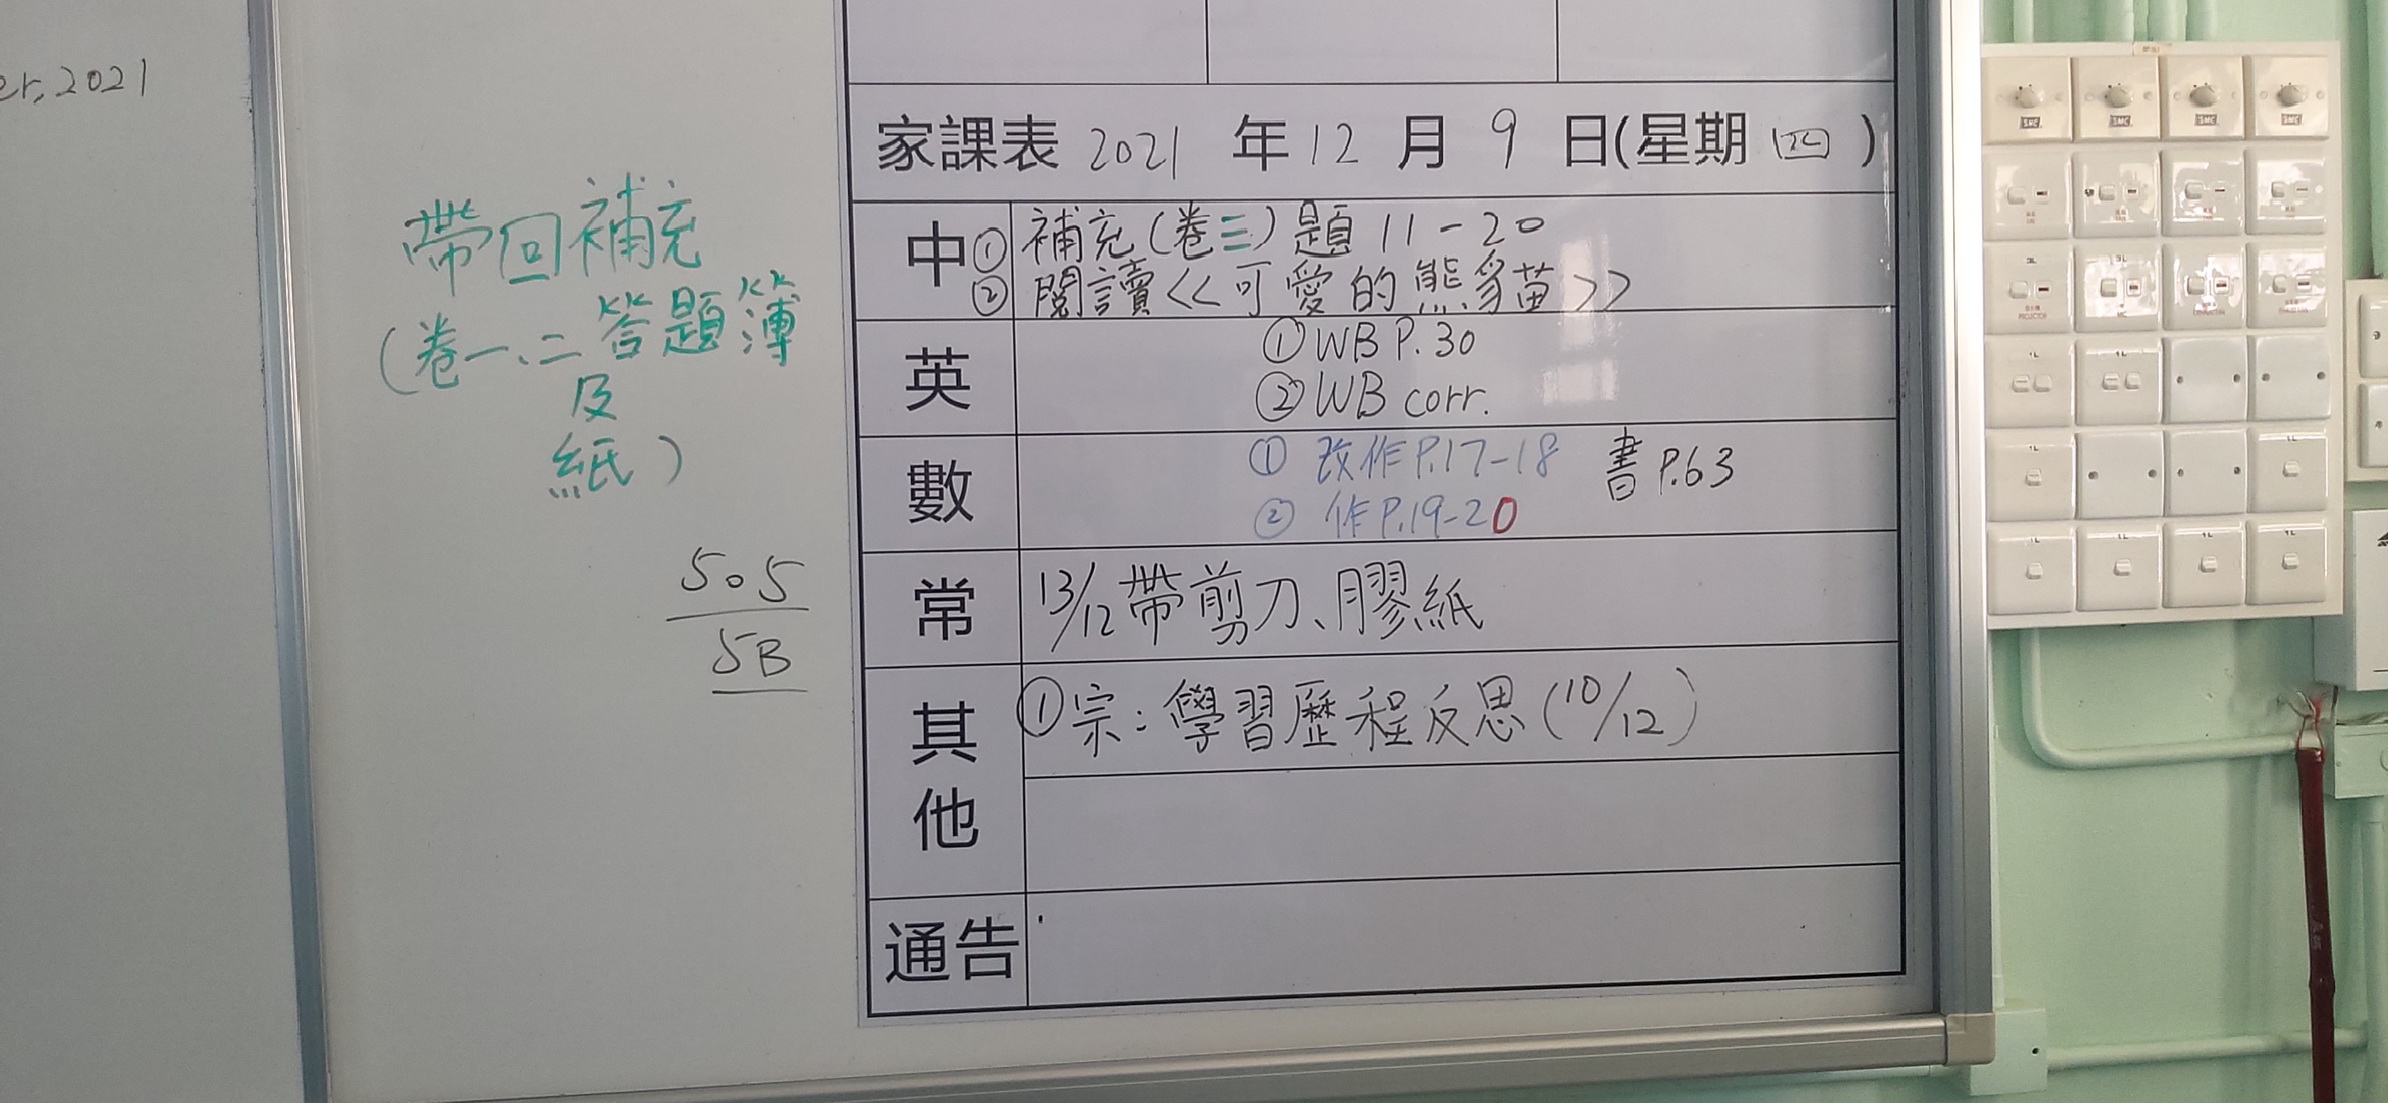 er, 2021
帶回補充
(卷一、二答題簿
及
紙)
505
5B
家課表 2021 年 12 月 9 日(星期四)
中 ① 補充(卷三)題 11-20
② 閱讀<<可愛的熊貓苗>>
英 ① WB P.30
② WB corr.
數 ① 改作P.17-18 書P.63
② 作P.19-20
常 13/12 帶剪刀、膠紙
其他 ① 宗：學習歷程反思(10/12)
通告